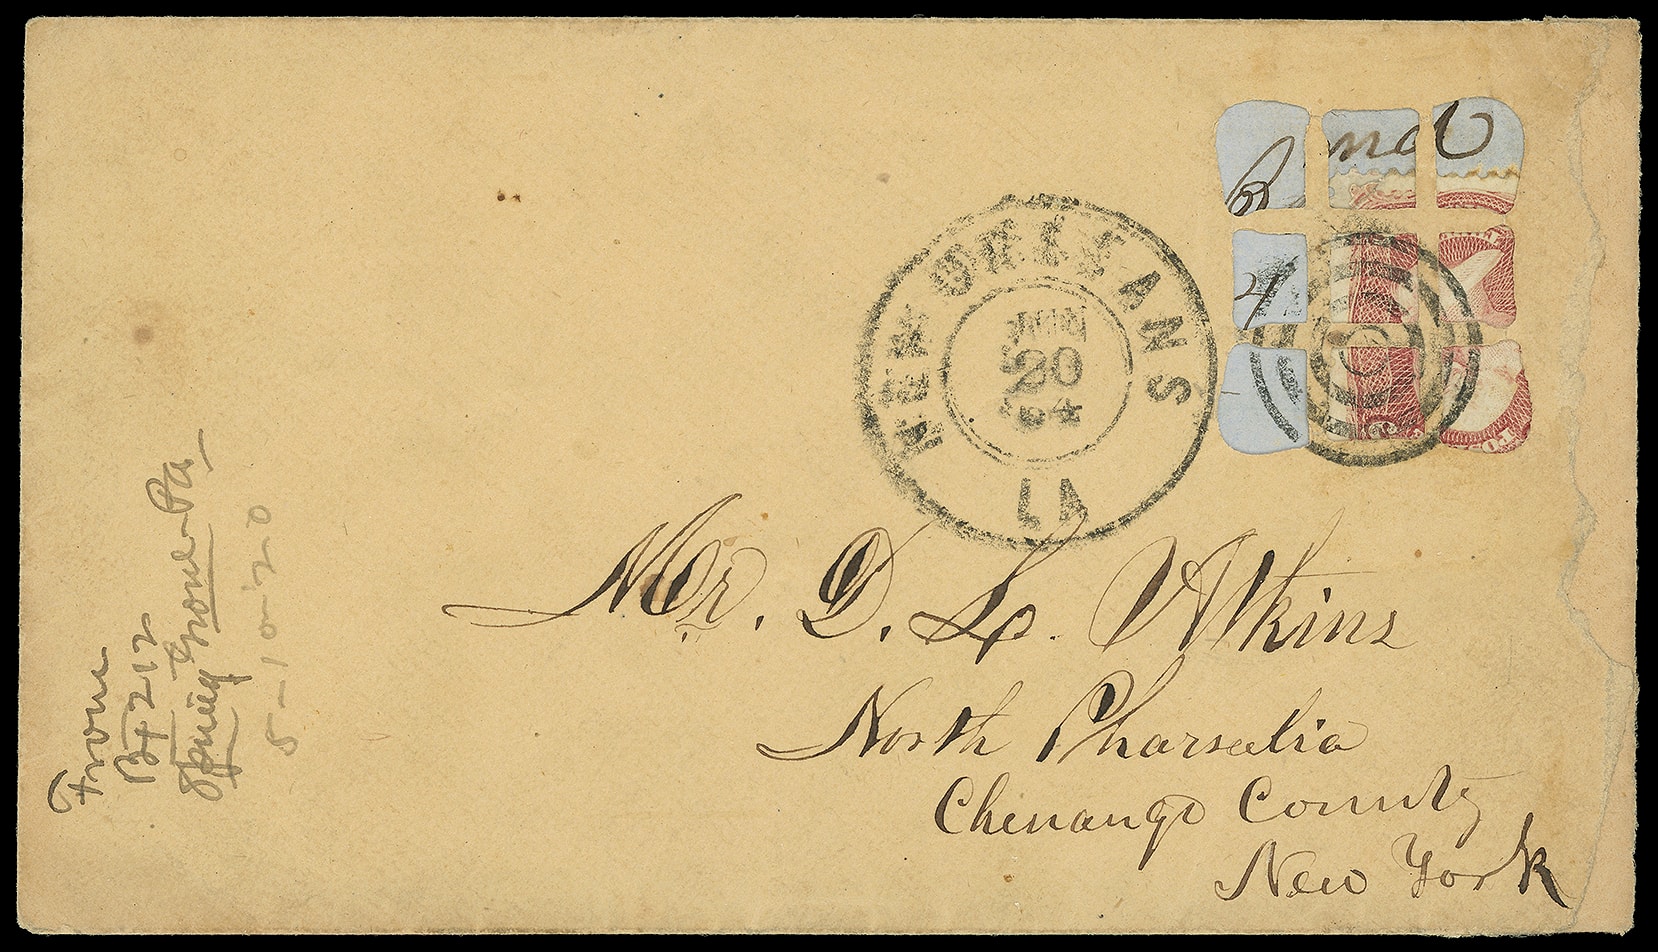 NEW ORLEANS
JUN
20
'64
LA
Mr. D. L. Atkins
North Pharsalia
Chenango County
New York
From
Bx 212
Spring Grove Pa
5-10-20